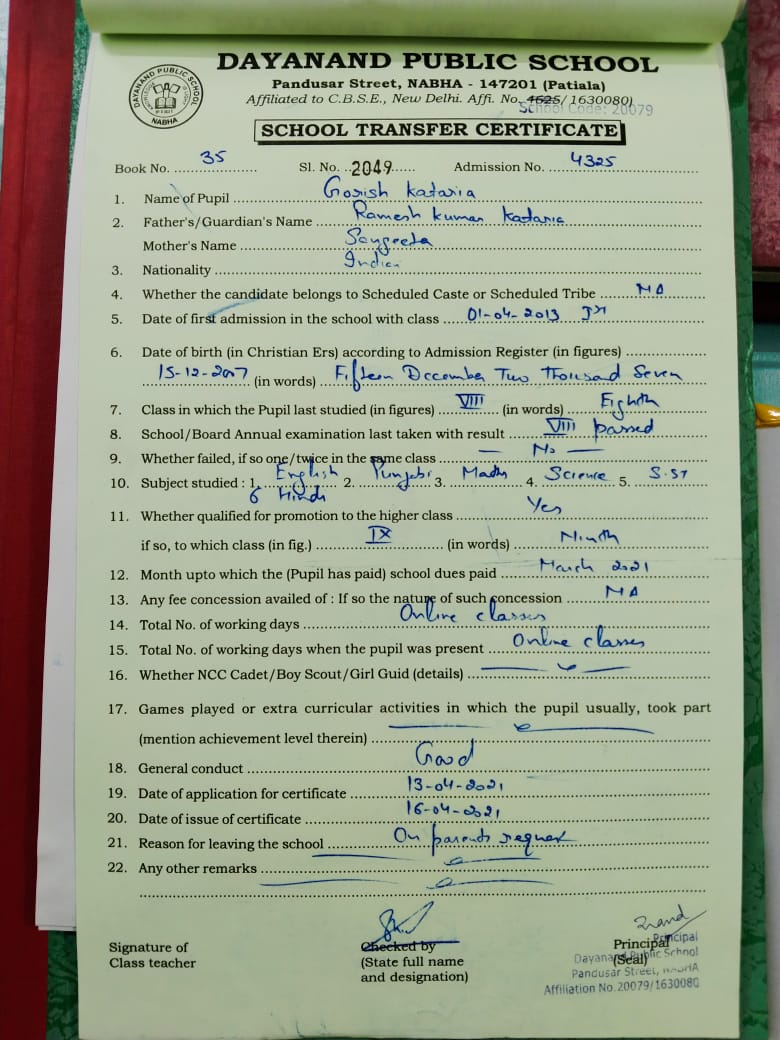 DAYANAND PUBLIC SCHOOL
Pandusar Street, NABHA - 147201 (Patiala)
Affiliated to C.B.S.E., New Delhi. Affi. No. 4625/1630080)
School Code: 20079
DAYANAND PUBLIC SCHOOL NABHA
SCHOOL TRANSFER CERTIFICATE
Book No. 35 Sl. No. 2049 Admission No. 4325
1. Name of Pupil Gorish Kataria
2. Father's/Guardian's Name Ramesh Kumar Kataria
Mother's Name Sangeeta
3. Nationality Indian
4. Whether the candidate belongs to Scheduled Caste or Scheduled Tribe NA
5. Date of first admission in the school with class 01-04-2013
6. Date of birth (in Christian Ers) according to Admission Register (in figures)
15-12-2007 (in words) Fifteen December Two Thousand Seven
7. Class in which the Pupil last studied (in figures) VIII (in words) Eighth
8. School/Board Annual examination last taken with result VIII passed
9. Whether failed, if so one/twice in the same class — No —
10. Subject studied : 1. English 2. Punjabi 3. Maths 4. Science 5. S.ST
6 Hindi
11. Whether qualified for promotion to the higher class Yes
if so, to which class (in fig.) IX (in words) Ninth
12. Month upto which the (Pupil has paid) school dues paid March 2021
13. Any fee concession availed of : If so the nature of such concession NA
14. Total No. of working days Online classes
15. Total No. of working days when the pupil was present Online classes
16. Whether NCC Cadet/Boy Scout/Girl Guid (details)
17. Games played or extra curricular activities in which the pupil usually, took part
(mention achievement level therein)
18. General conduct Good
19. Date of application for certificate 13-04-2021
20. Date of issue of certificate 16-04-2021
21. Reason for leaving the school On parents request
22. Any other remarks
Signature of
Class teacher
Checked by
(State full name
and designation)
Principal
(Seal)
Principal
Dayanand Public School
Pandusar Street, NABHA
Affiliation No. 20079/1630080